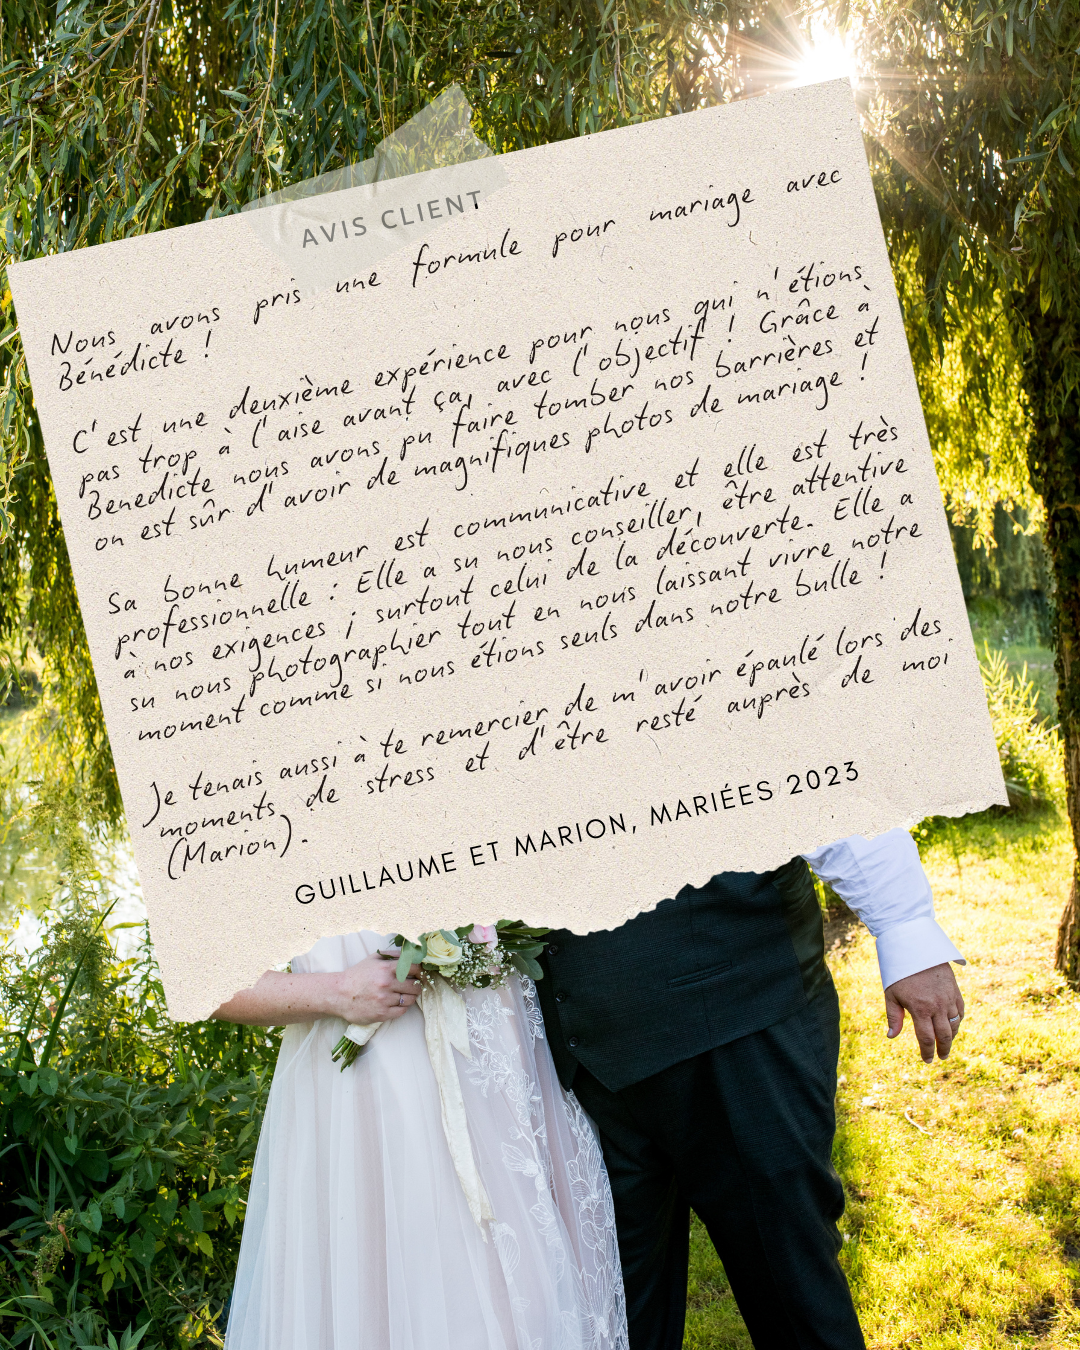 AVIS CLIENT
Nous avons pris une formule pour mariage avec
Bénédicte !
C'est une deuxième expérience pour nous qui n'étions
pas trop à l'aise avant ça, avec l'objectif ! Grâce à
Benedicte nous avons pu faire tomber nos barrières et
on est sûr d'avoir de magnifiques photos de mariage !
Sa bonne humeur est communicative et elle est très
professionnelle : Elle a su nous conseiller, être attentive
à nos exigences ; surtout celui de la découverte. Elle a
su nous photographier tout en nous laissant vivre notre
moment comme si nous étions seuls dans notre bulle !
Je tenais aussi à te remercier de m'avoir épaulé lors des
moments de stress et d'être resté auprès de moi
(Marion).
GUILLAUME ET MARION, MARIÉES 2023